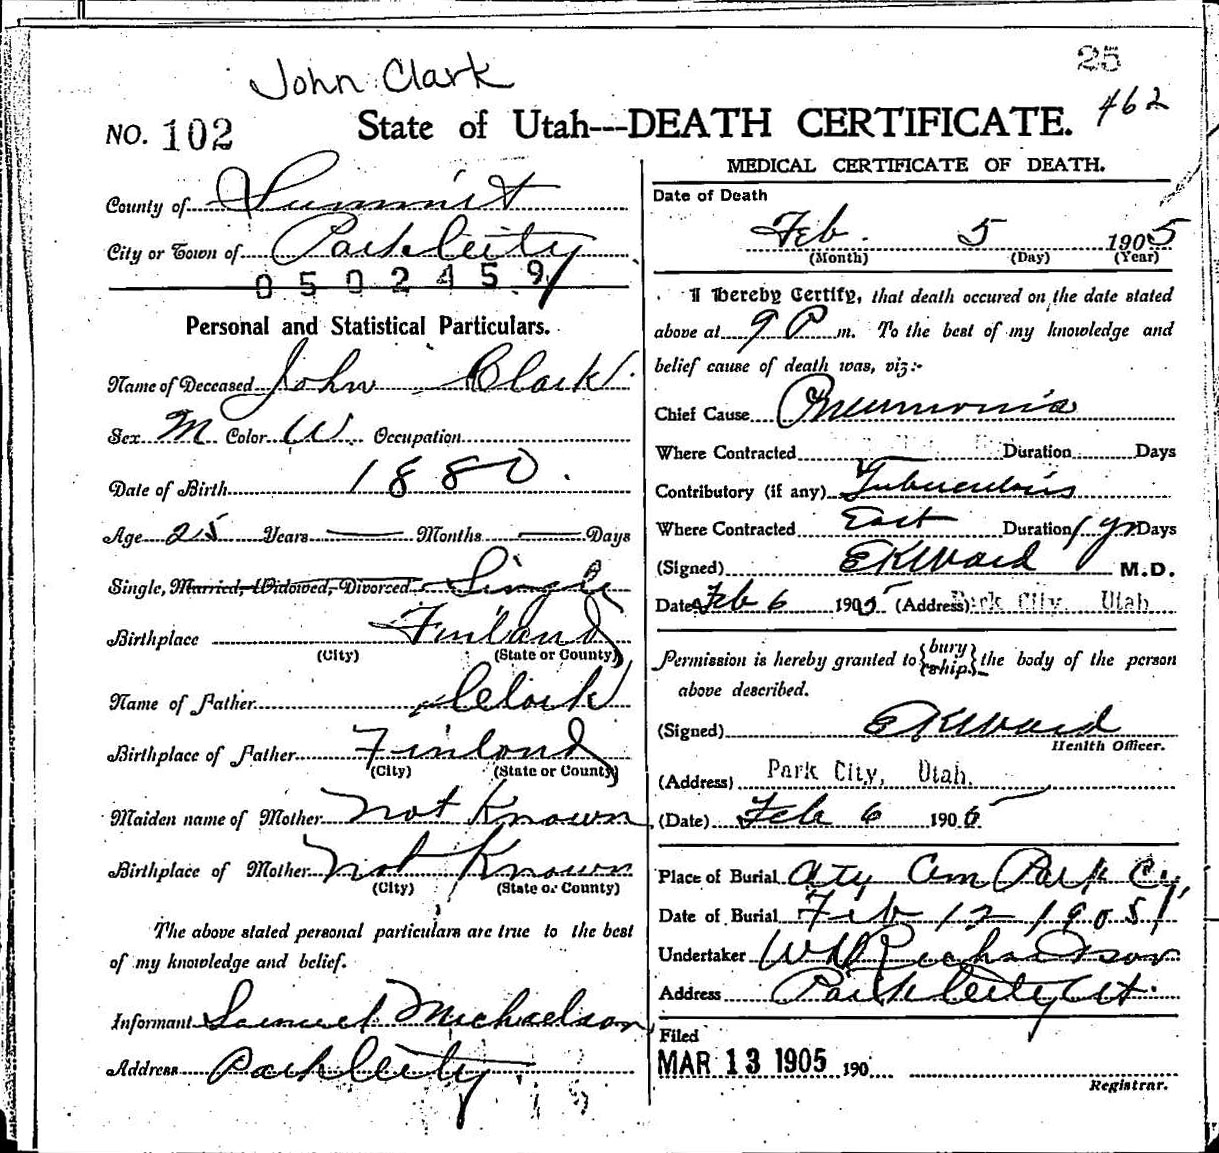 25
John Clark
462
NO. 102
State of Utah---DEATH CERTIFICATE.
County of Summit
City or Town of Park Ceity
0502459
Personal and Statistical Particulars.
Name of Deceased John Clark
Sex M Color W Occupation
Date of Birth 1880.
Age 25 Years — Months — Days
Single, Married, Widowed, Divorced Single
Birthplace Finland
(City) (State or County)
Name of Father Clark
Birthplace of Father Finland
(City) (State or County)
Maiden name of Mother not Known
Birthplace of Mother not Known
(City) (State or County)
The above stated personal particulars are true to the best
of my knowledge and belief.
Informant Samuel Michaelson
Address Park Ceity
MEDICAL CERTIFICATE OF DEATH.
Date of Death
Feb. 5 1905
(Month) (Day) (Year)
I Hereby Certify, that death occured on the date stated
above at 9 P m. To the best of my knowledge and
belief cause of death was, viz:-
Chief Cause Pneumonia
Where Contracted Duration Days
Contributory (if any) Tuberculosis
Where Contracted East Duration 1 yr Days
(Signed) EKWard M.D.
Date Feb 6 1905 (Address) Park City, Utah
Permission is hereby granted to {bury
{ship.} the body of the person
above described.
(Signed) EKWard
Health Officer.
(Address) Park City, Utah.
(Date) Feb 6 1905
Place of Burial City Cem Park Cy,
Date of Burial Feb 12 1905
Undertaker WD Richardson
Address Park Ceity Ut.
Filed
MAR 13 1905 190
Registrar.